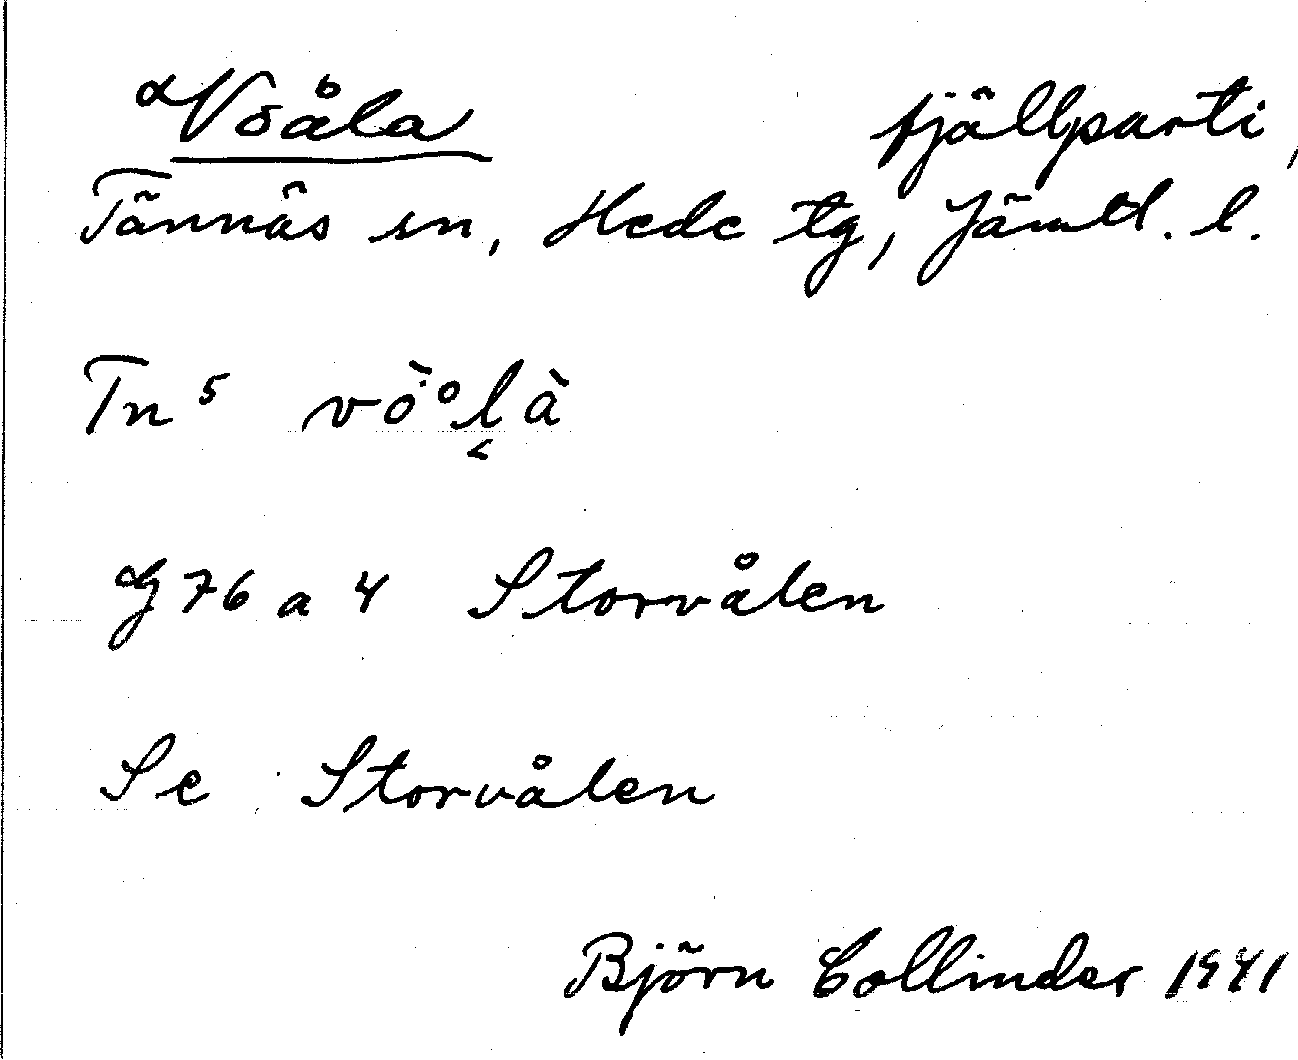 Voåla fjällparti,
Tännäs sn, Hede tg, Jämtl. l.
Tn⁵ vò̇°l̬à
G 76 a 4 Storvålen
Se Storvålen
Björn Collinder 1941